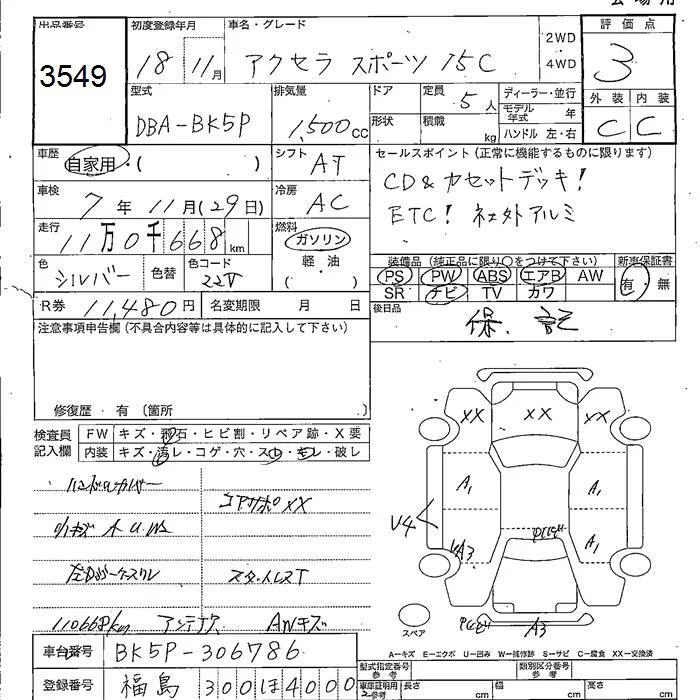 出品番号 3549
初度登録年月 18 11月
車名・グレード アクセラ スポーツ 15C
2WD ・ 4WD
評価点 3
外装 内装
C C
型式 DBA-BK5P
排気量 1,500cc
ドア 形状
定員 5人
積載 kg
ディーラー・並行
モデル年式 年
ハンドル 左・右
車歴 自家用・( )
シフト AT
セールスポイント(正常に機能するものに限ります)
CD & カセットデッキ!
ETC! 社外アルミ
車検 7年11月(29日)
冷房 AC
走行 11万0千668km
燃料 ガソリン
軽・油
( )
色 シルバー 色替
色コード 22V
装備品(純正品に限り○をつけて下さい)
PS PW ABS エアB AW
SR ナビ TV カワ
新車保証書 有・無
R券 11,480円 名変期限 月 日
後日品 保、記
注意事項申告欄(不具合内容等は具体的に記入して下さい)
修復歴・有(箇所 )
検査員記入欄
FW キズ・飛石・ヒビ割・リペア跡・X要
内装 キズ・汚レ・コゲ・穴・スレ・キレ・破レ
ハンドルカバー
コアサポXX
110668km アンテナ AWキズ
XX XX XX
A1 A1
V4
A3 A1
A3
スペア
A=キズ E=エクボ U=凹み W=補修跡 S=サビ C=腐食 XX=交換済
車台番号 BK5P-306786
登録番号 福島 300 ほ 4000
型式指定番号 参考
類別区分番号 参考
車庫証明用 参考
長さ cm 幅 cm 高さ cm